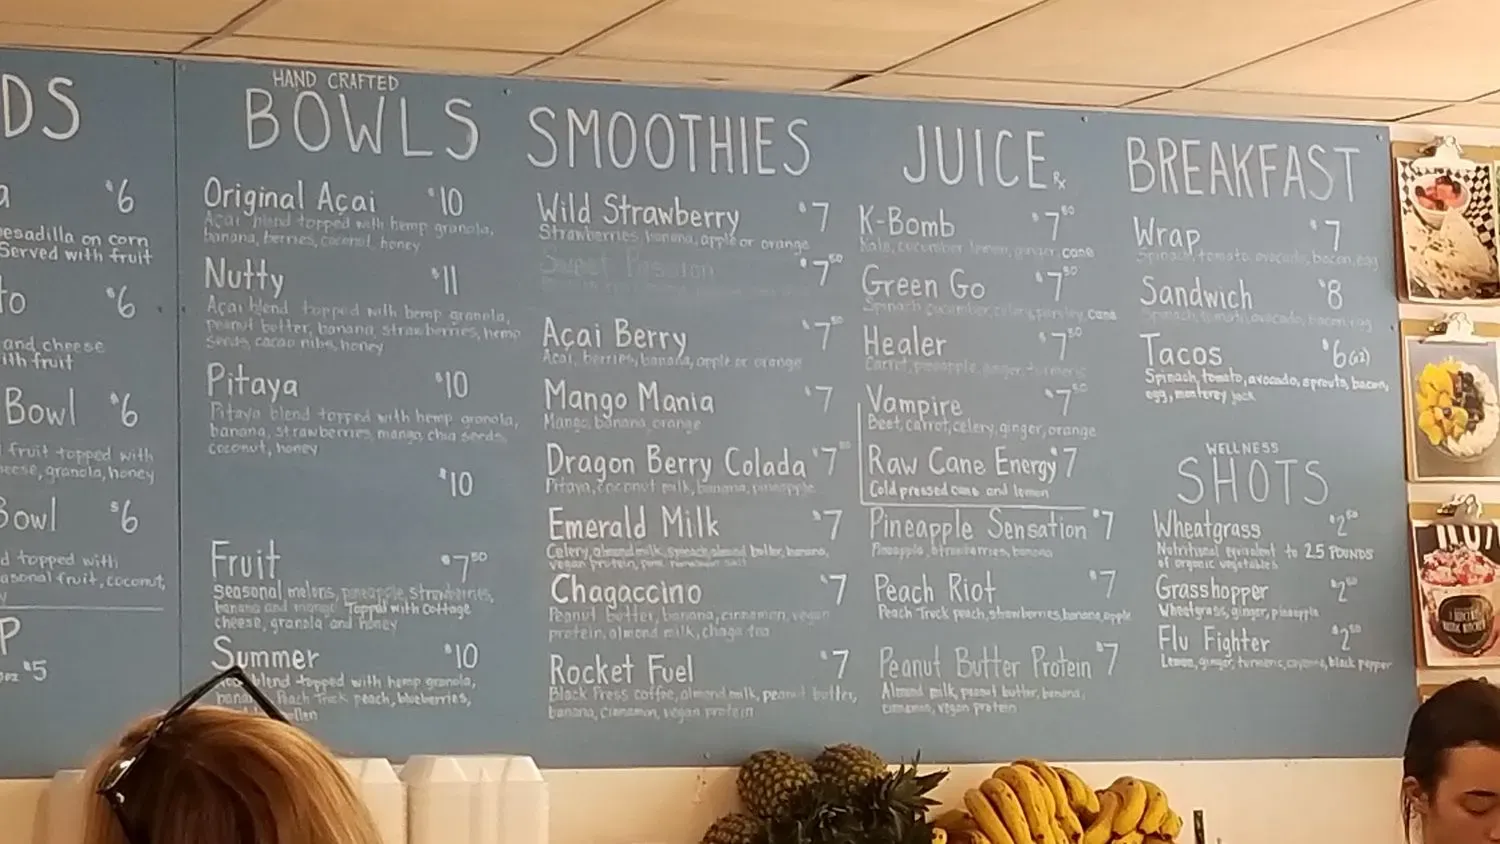 DS
a $6
esadilla on corn
Served with fruit
to $6
and cheese
ith fruit
Bowl $6
fruit topped with
eese, granola, honey
Bowl $6
d topped with
asonal fruit, coconut,
y
P
oz $5
HAND CRAFTED
BOWLS
Original Açai $10
Açai blend topped with hemp granola,
banana, berries, coconut, honey
Nutty $11
Açai blend topped with hemp granola,
peanut butter, banana, strawberries, hemp
seeds, cacao nibs, honey
Pitaya $10
Pitaya blend topped with hemp granola,
banana, strawberries, mango, chia seeds,
coconut, honey
$10
Fruit $7.50
seasonal melons, pineapple, strawberries,
banana and mango. Topped with cottage
cheese, granola and honey
Summer $10
blend topped with hemp granola,
banana, Peach Truck peach, blueberries,
SMOOTHIES
Wild Strawberry $7
Strawberries, banana, apple or orange
Sweet Passion $7.50
Açai Berry $7.50
Açai, berries, banana, apple or orange
Mango Mania $7
Mango, banana, orange
Dragon Berry Colada $7.50
Pitaya, coconut milk, banana, pineapple
Emerald Milk $7
Celery, almond milk, spinach, almond butter, banana,
vegan protein, pink himalayan salt
Chagaccino $7
Peanut butter, banana, cinnamon, vegan
protein, almond milk, chaga tea
Rocket Fuel $7
Black Press coffee, almond milk, peanut butter,
banana, cinnamon, vegan protein
JUICE Rx
K-Bomb $7.50
Kale, cucumber, lemon, ginger, cane
Green Go $7.50
Spinach, cucumber, celery, parsley, cane
Healer $7.50
Carrot, pineapple, ginger, turmeric
Vampire $7.50
Beet, carrot, celery, ginger, orange
Raw Cane Energy $7
Cold pressed cane and lemon
Pineapple Sensation $7
Pineapple, strawberries, banana
Peach Riot $7
Peach Truck peach, strawberries, banana, apple
Peanut Butter Protein $7
Almond milk, peanut butter, banana,
cinnamon, vegan protein
BREAKFAST
Wrap $7
Spinach, tomato, avocado, bacon, egg
Sandwich $8
Spinach, tomato, avocado, bacon, egg
Tacos $6 (x2)
Spinach, tomato, avocado, sprouts, bacon,
egg, monterey jack
WELLNESS
SHOTS
Wheatgrass $2.50
Nutritional equivalent to 2.5 POUNDS
of organic vegetables
Grasshopper $2.50
Wheatgrass, ginger, pineapple
Flu Fighter $2.50
Lemon, ginger, turmeric, cayenne, black pepper